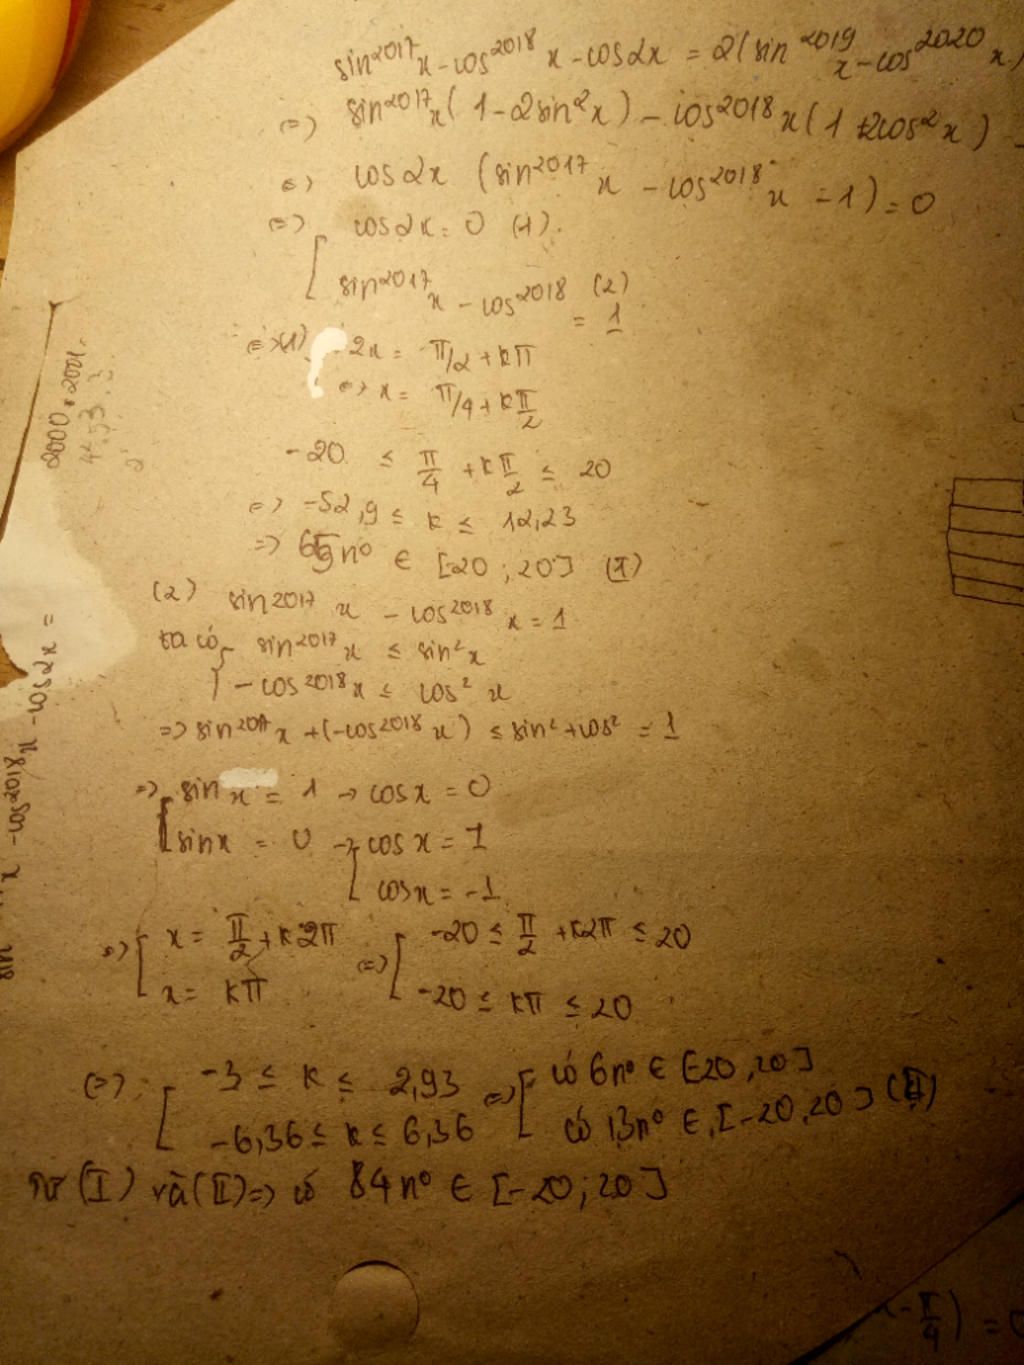 sin²⁰¹⁷x - cos²⁰¹⁸x - cos2x = 2(sin²⁰¹⁹x - cos²⁰²⁰x)
(=) sin²⁰¹⁷x(1 - 2sin²x) - cos²⁰¹⁸x(1 + 2cos²x) -
(=) cos2x (sin²⁰¹⁷x - cos²⁰¹⁸x - 1) = 0
(=) [ cos2x = 0 (1).
sin²⁰¹⁷x - cos²⁰¹⁸ = 1 (2)
(=) (1) 2x = π/2 + kπ
(=) x = π/4 + kπ/2
-20 ≤ π/4 + kπ/2 ≤ 20
(=) -52,9 ≤ k ≤ 12,23
=> 65n° ∈ [-20; 20] (I)
(2) sin2017 x - cos²⁰¹⁸x = 1
ta có { sin²⁰¹⁷x ≤ sin²x
-cos²⁰¹⁸x ≤ cos²x
=> sin²⁰¹⁷x + (-cos²⁰¹⁸x) ≤ sin² + cos² = 1
=> [ sin x = 1 -> cosx = 0
sinx = 0 -> [ cosx = 1
cosx = -1
(=) [ x = π/2 + k2π (=) [ -20 ≤ π/2 + k2π ≤ 20
x = kπ -20 ≤ kπ ≤ 20
(=) [ -3 ≤ k ≤ 2,93 (=) [ có 6n° ∈ [-20, 20]
-6,36 ≤ k ≤ 6,36 có 13n° ∈ [-20, 20] (II)
Từ (I) và (II) => có 84n° ∈ [-20; 20]
2000 . 2001.
x - cos²⁰¹⁸x - cos2x =
x - π/4) = 0